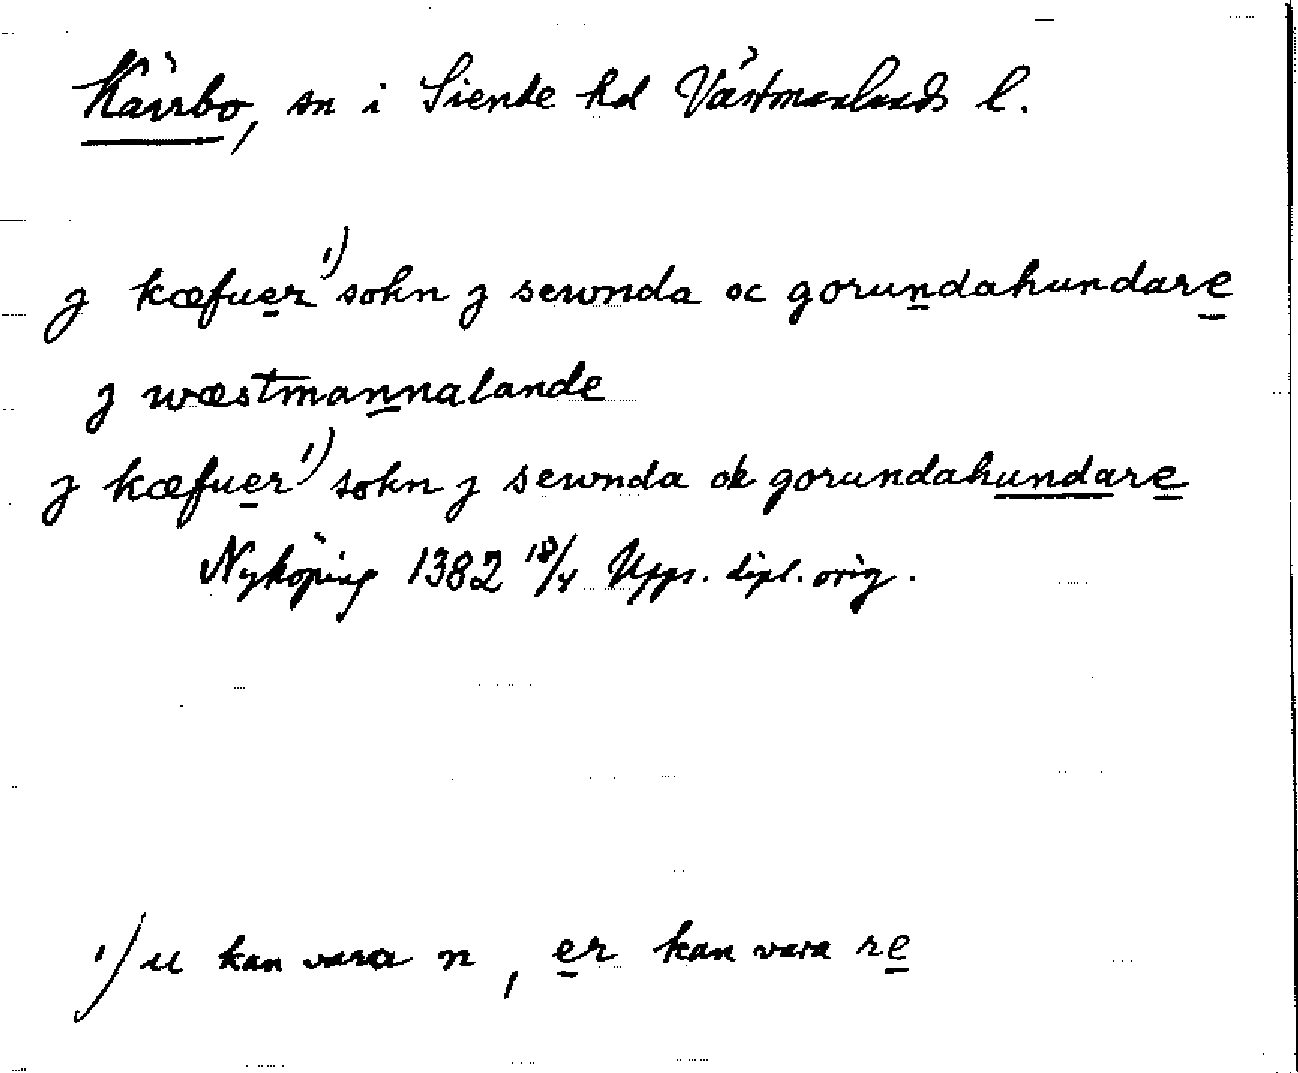 Kärrbo, sn i Siende hd Västmanlands l.
j kæfuer¹) sokn j sewnda oc gorundahundare
j wæstmannalande
j kæfuer¹) sokn j sewnda ok gorundahundare
Nyköping 1382 18/4 Upps. dipl. orig.
¹) u kan vara n, er kan vara re